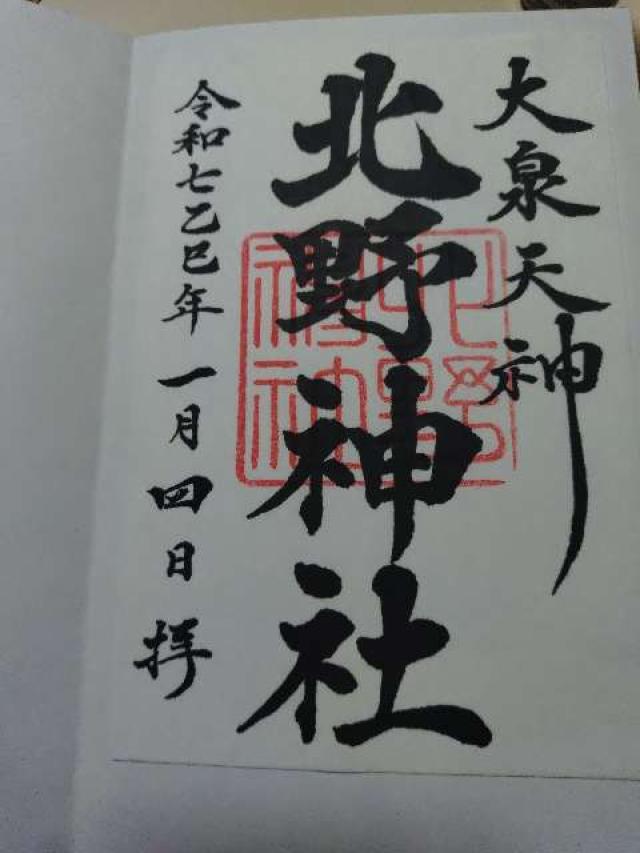 大泉天神
北野神社
令和七乙巳年一月四日拝